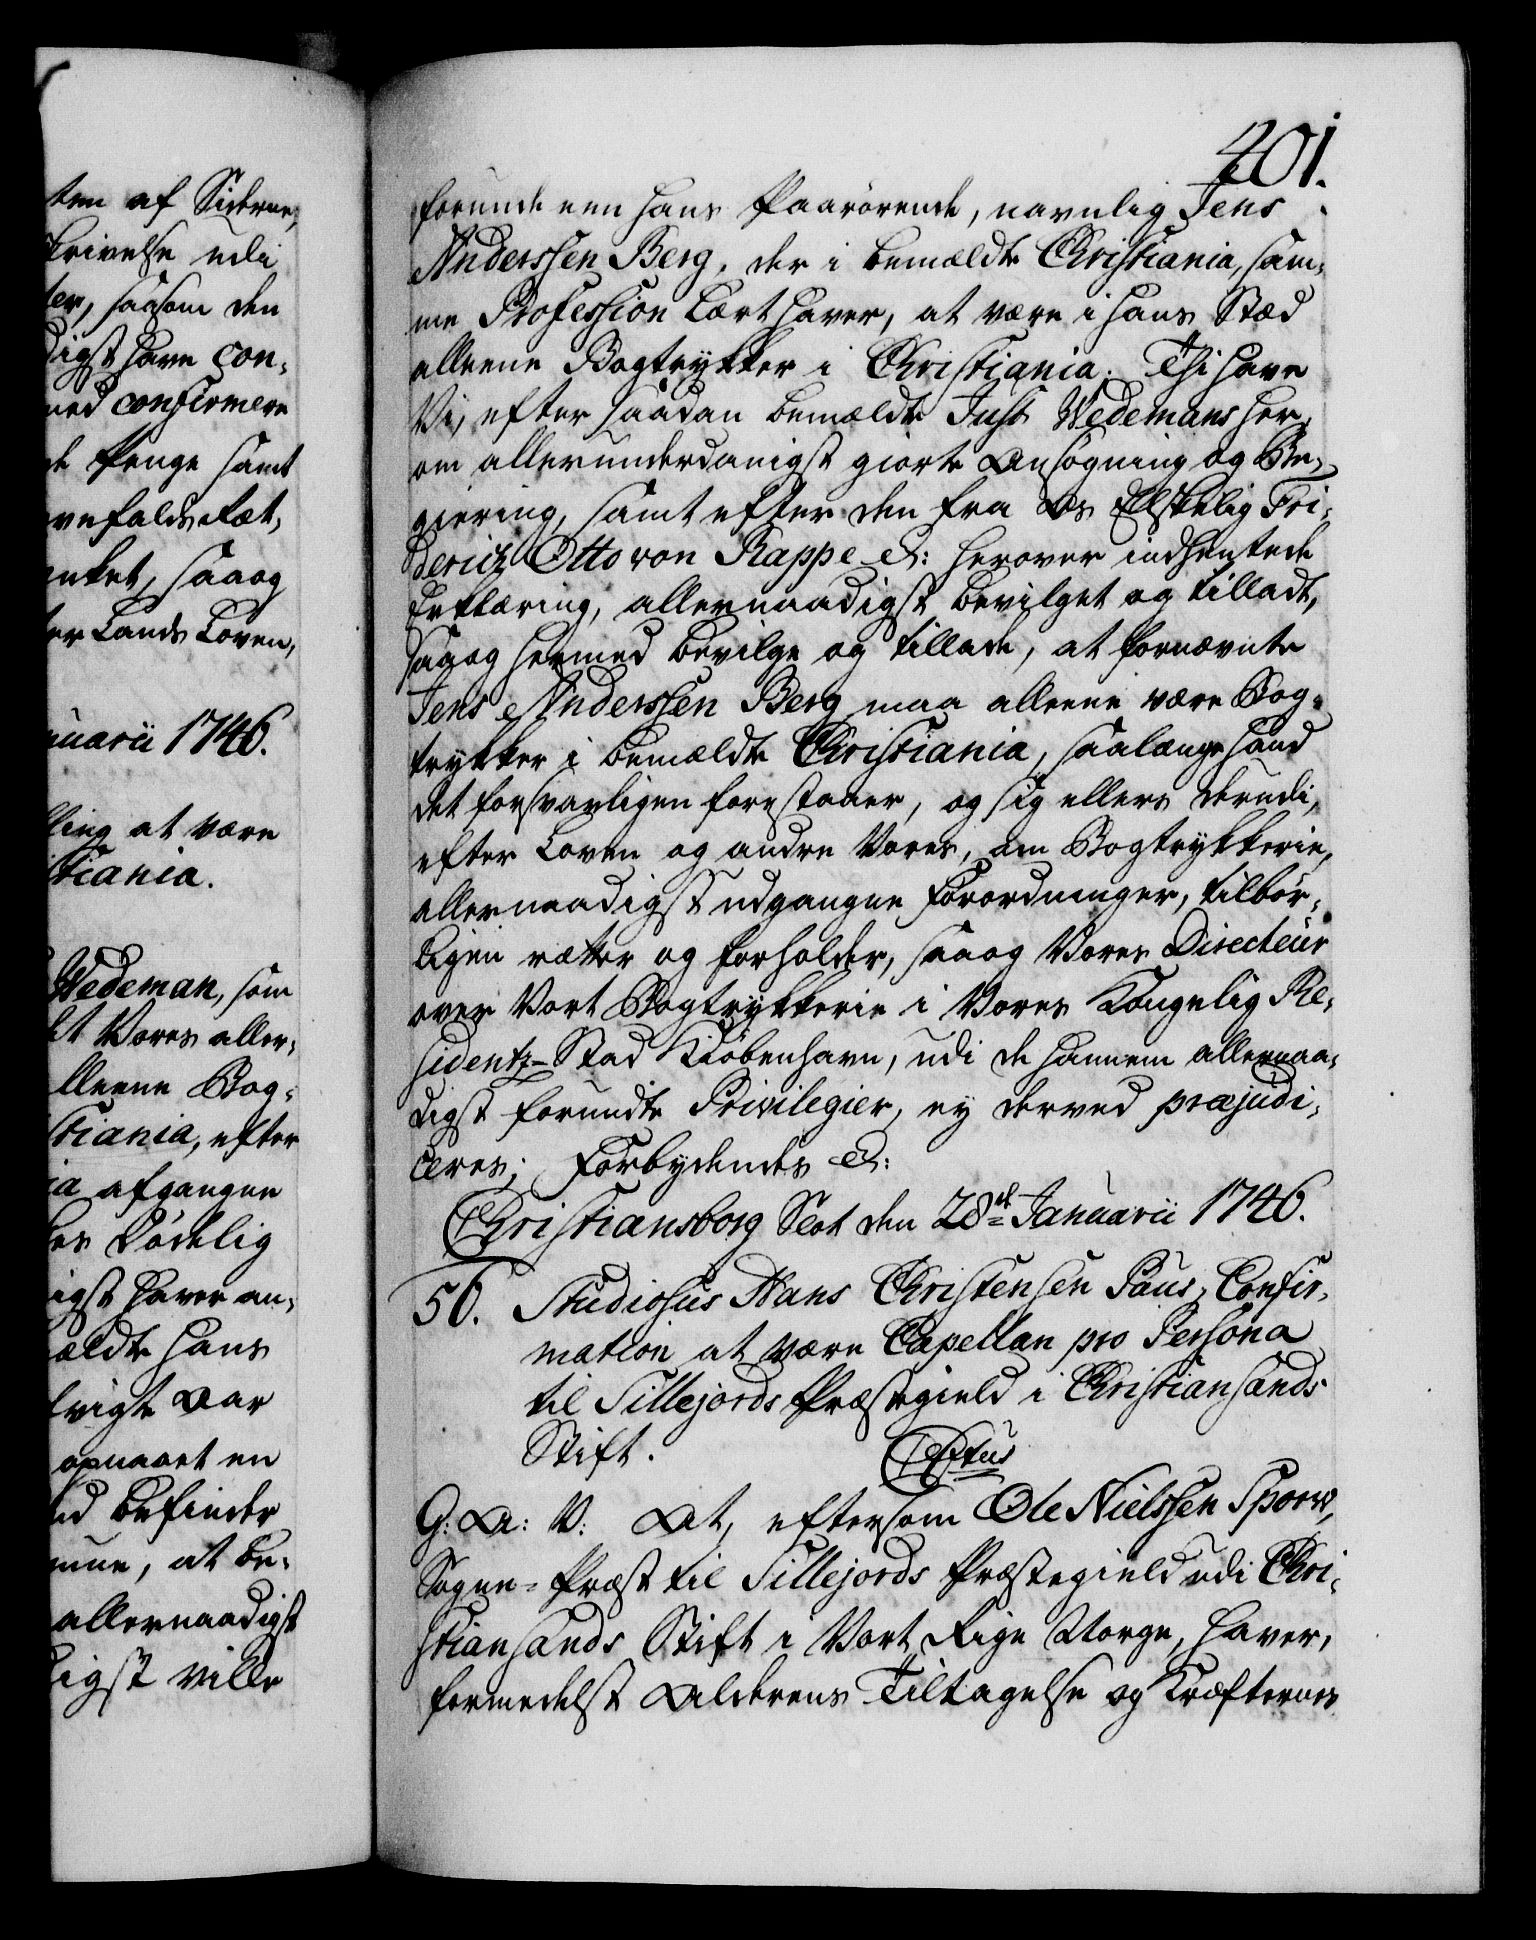 ten af Siderne,
krivelse udi
ter, saasom den
digst have con-
med confirmere
de Penge samt
anket, saaog
er Lands Loven,
nuarii 1746.
lling at være
stiania.
Wedeman, som
et Vores aller-
lleene Bog-
stiania, efter
ia afgangne
es Dødelig
igst haver an-
ældte hans
Aar
opnaaet en
ud befinder
mme, at be-
allernaadigst
digst ville
401.
forunde een hans Paarørende, navnlig Jens
Anderssen Berg, der i bemældte Christiania, sam-
me Profession lært haver, at være i hans Stæd
alleene Bogtrykker i Christiania; Thi have
Vi, efter saadan bemældte Just Wedemans her-
om allerunderdanigst giorte Ansøgning og Be-
giering, samt efter den fra Os Elskelig Fri-
derich Otto von Rappe &: herover indhentede
Erklæring, allernaadigst bevilget og tilladt,
saaog hermed bevilge og tillade, at fornævnte
Jens Anderssen Berg maa alleene være Bog-
trykker i bemældte Christiania, saalænge hand
det forsvarligen forestaaer, og sig ellers derudi,
efter Loven og andre Vores, om Bogtrykkerie,
allernaadigst udgangne Forordninger, tilbør-
ligen retter og forholder, saaog Vores Directeur
over Vort Bogtrykkerie i Vores Kongelig Re-
sidentz-Stad Kiøbenhavn, udi de hannem allernaa-
digst forundte Privilegier, ey derved præjudi-
ceres; Forbydendes &:
Christiansborg Slot den 28de Januarii 1746.
56. Studiosus Hans Christensen Paus, Confir-
mation at være Capellan pro Persona
til Tillejords Præstegield i Christiansands
Stift.
G: A: V: At, eftersom Ole Nielssen Spoern,
Sogne-Præst til Tillejords Præstegield udi Chri-
stiansands Stift i Vort Rige Norge, haver,
formedelst Alderens Tiltagelse og Kræfternes